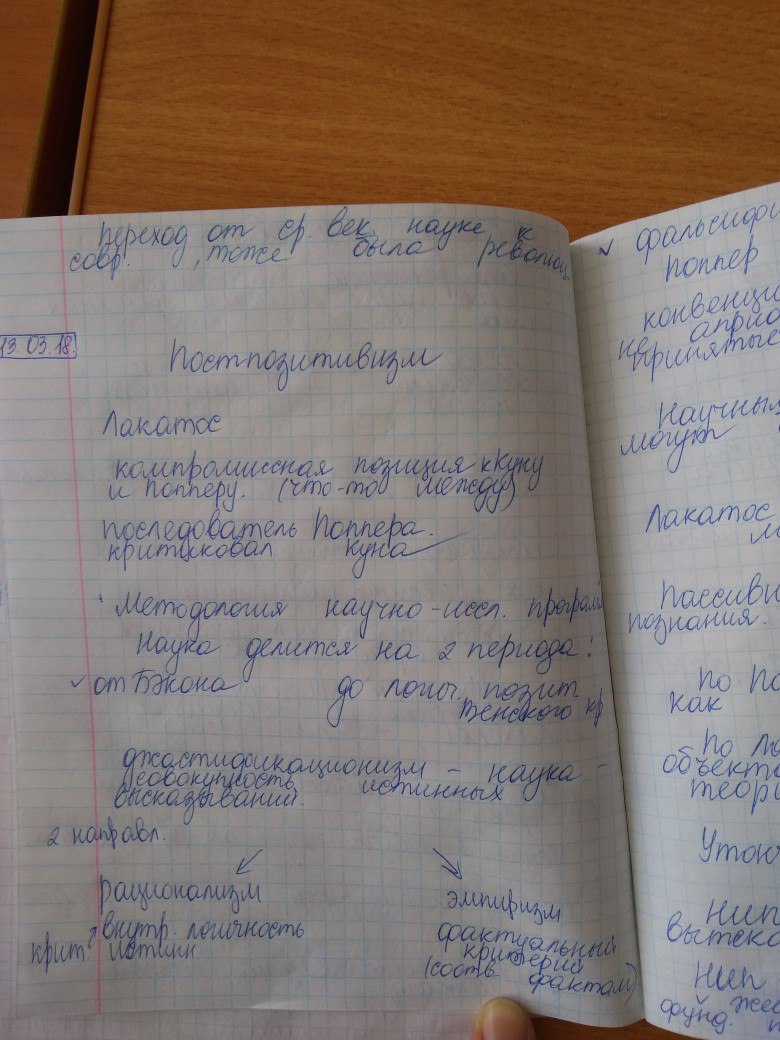 переход от ср. век. науке к
совр. , тоже была революц.
13.03.18.
Постпозитивизм
Лакатос
компромиссная позиция к Куну
и Попперу. (что-то между)
последователь Поппера.
критиковал Куна
Методология научно-иссл. програм
Наука делится на 2 периода:
от Бэкона до логич. позит
Венского кр
джастификационизм - наука -
совокупность истинных
высказываний.
2 направл.
рационализм эмпиризм
внутр. логичность фактуальный
крит. истин критерий
(соотв. фактам)
фальсифи
Поппер
конвенци
не априо
принятые
Научны
могут
Лакатос
Пассивн
познания.
по По
как
по Ла
объекто
теори
Утон
НИП
вытеска
НИП
фунд. жес